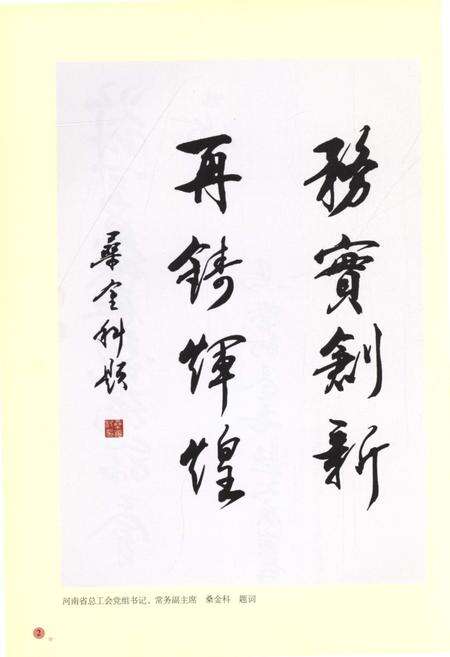 務實創新
再鑄輝煌
桑金科題
河南省总工会党组书记、常务副主席 桑金科 题词
2